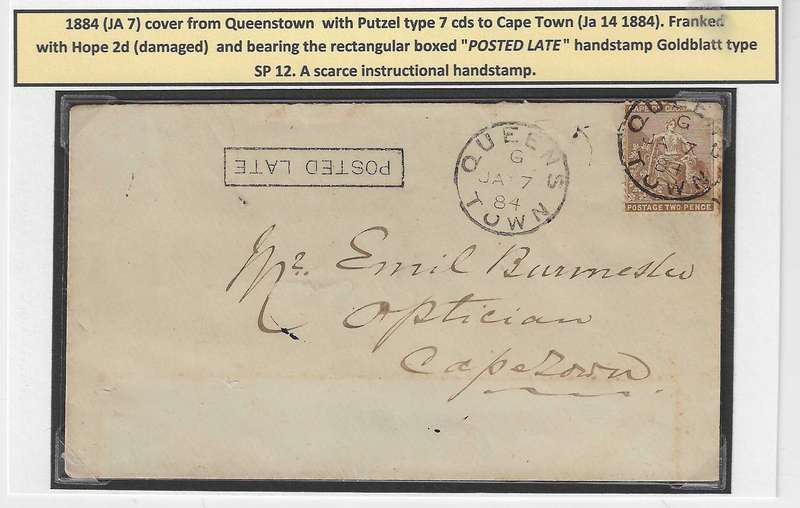 1884 (JA 7) cover from Queenstown with Putzel type 7 cds to Cape Town (Ja 14 1884). Franked
with Hope 2d (damaged) and bearing the rectangular boxed "POSTED LATE" handstamp Goldblatt type
SP 12. A scarce instructional handstamp.
POSTED LATE
QUEENS
G
JA 7
84
TOWN
QUEENS
G
JA 7
84
TOWN
POSTAGE TWO PENCE
Mr. Emil Burmester
Optician
Capetown